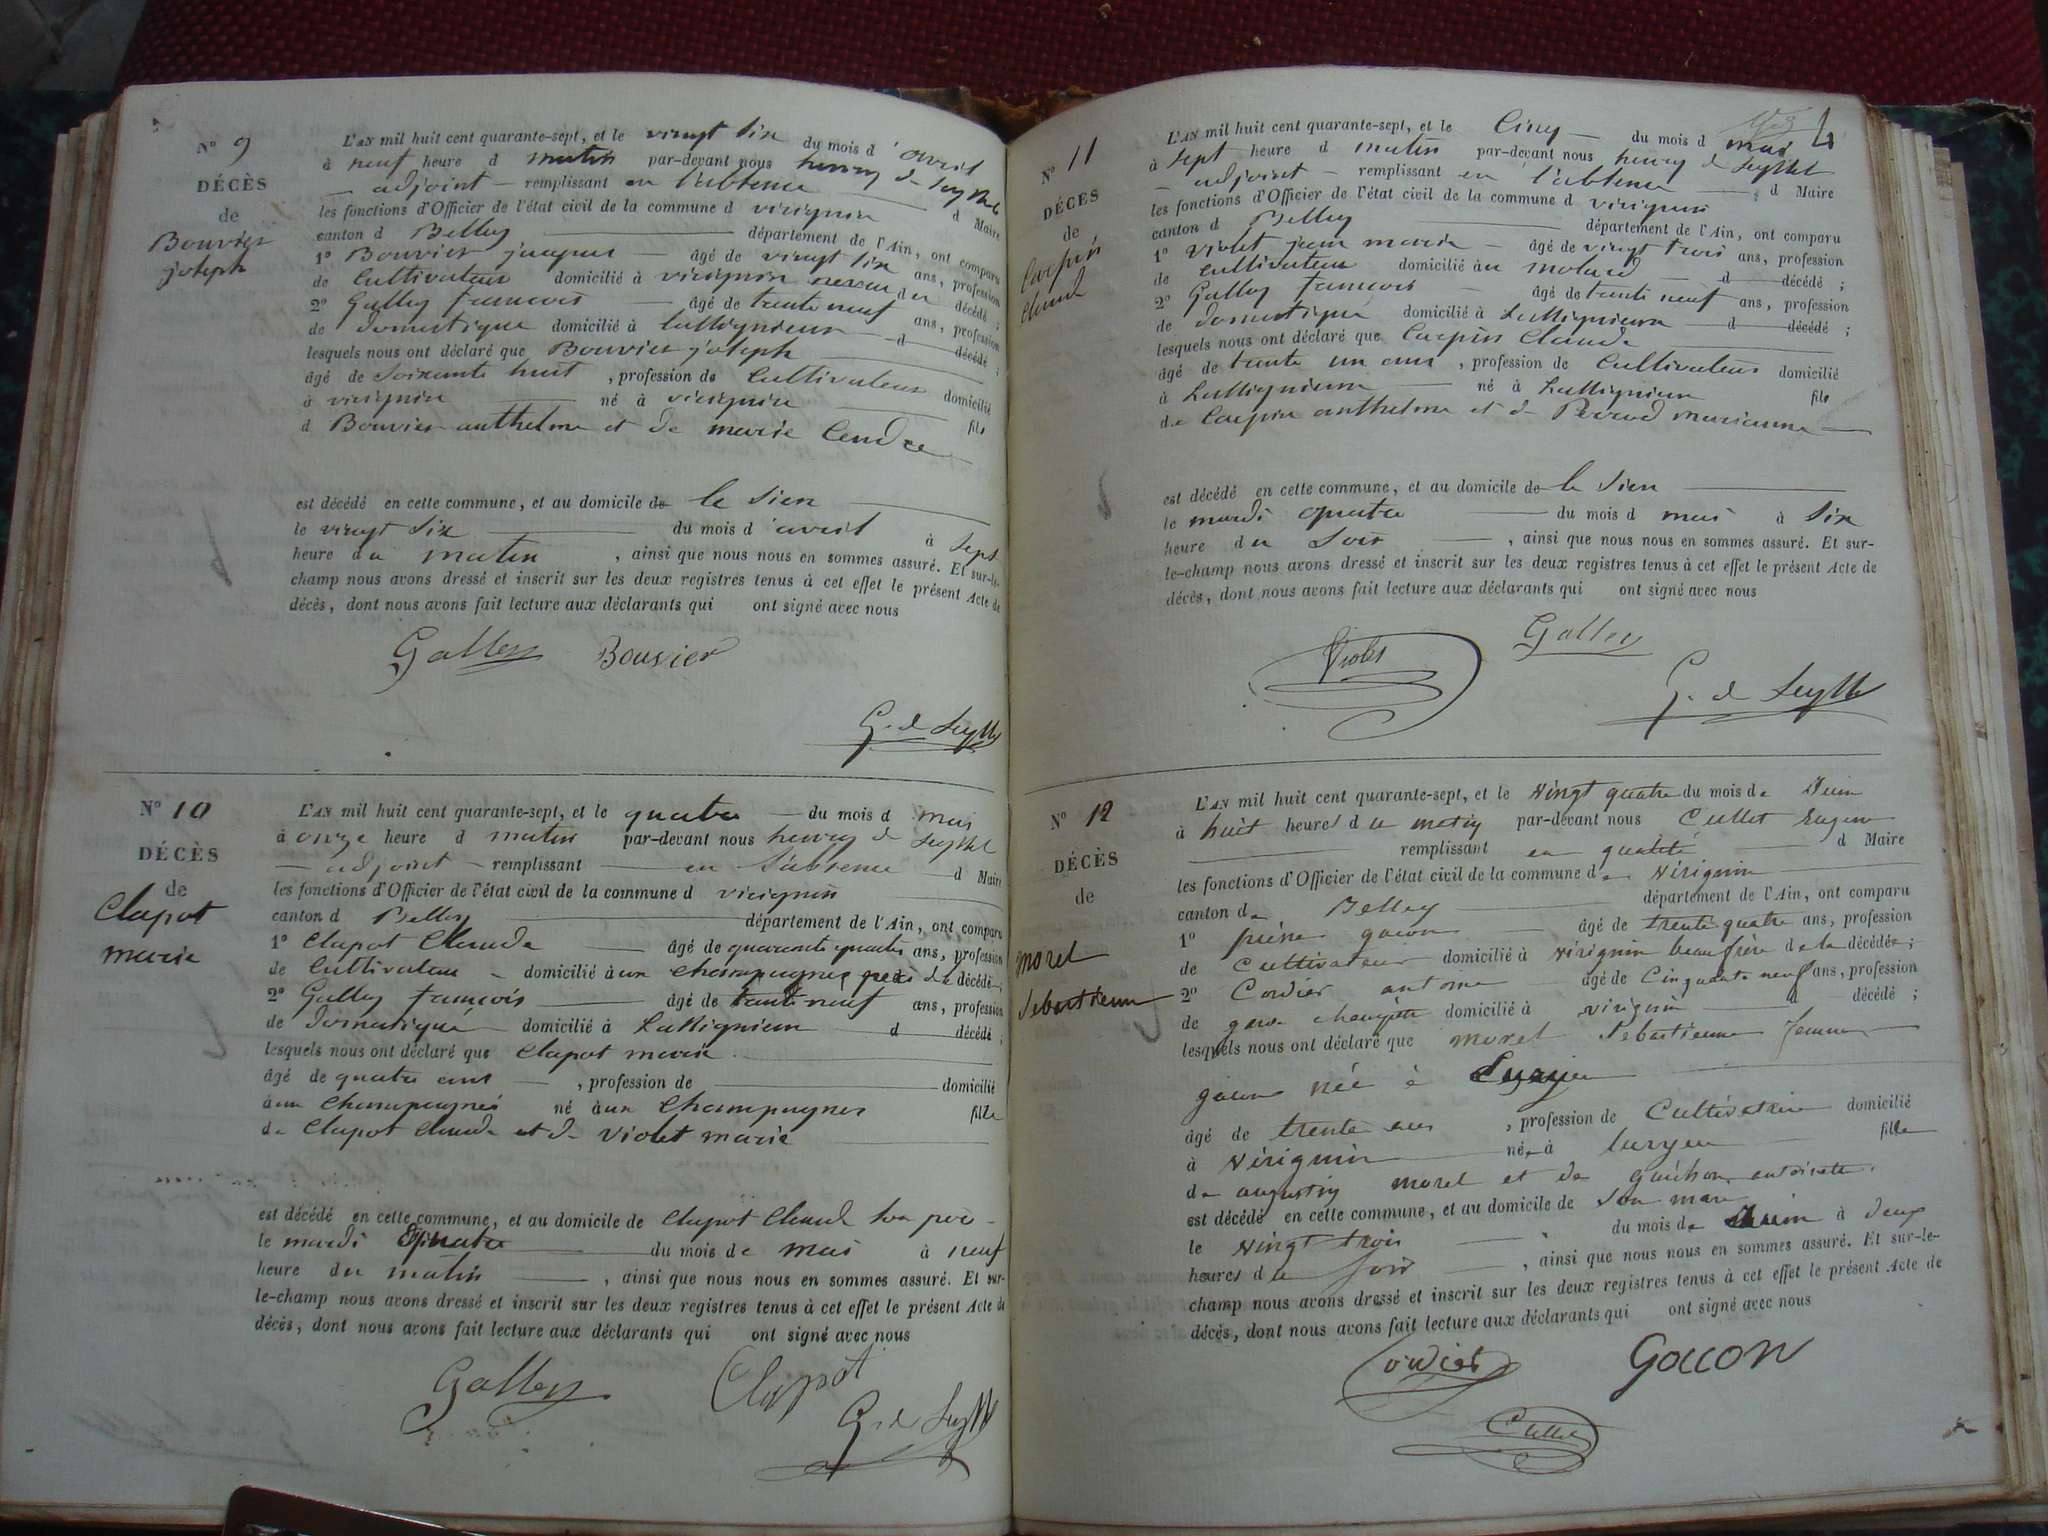 N° 9
DÉCÈS
de
Bouvier
joseph
L'AN mil huit cent quarante-sept, et le vingt six du mois d'avril
à neuf heure d matin par-devant nous henry de Seyssel
adjoint remplissant en l'absence d Maire
les fonctions d'Officier de l'état civil de la commune d virignin
canton d Belley département de l'Ain, ont comparu
1° Bouvier jacques âgé de vingt six ans, profession
de Cultivateur domicilié à virignin neveu du décédé ;
2° Galley francois âgé de trente neuf ans, profession
de domestique domicilié à Lassignieux d décédé ;
lesquels nous ont déclaré que Bouvier joseph
âgé de soixante huit , profession de Cultivateur domicilié
à virignin né à virignin fils
d Bouvier anthelme et de marie Cendre
est décédé en cette commune, et au domicile de le sien
le vingt six du mois d'avril à sept
heure du matin , ainsi que nous nous en sommes assuré. Et sur-le-
champ nous avons dressé et inscrit sur les deux registres tenus à cet effet le présent Acte de
décès, dont nous avons fait lecture aux déclarants qui ont signé avec nous
Galley Bouvier
G. de Seyssel
N° 10
DÉCÈS
de
Clapot
marie
L'AN mil huit cent quarante-sept, et le quatre du mois d mai
à onze heure d matin par-devant nous henry de Seyssel
adjoint remplissant en l'absence d Maire
les fonctions d'Officier de l'état civil de la commune d virignin
canton d Belley département de l'Ain, ont comparu
1° Clapot Claude âgé de quarante quatre ans, profession
de Cultivateur domicilié à aux champagnes père de la décédée ;
2° Galley francois âgé de trente neuf ans, profession
de domestique domicilié à Lassignieux d décédé ;
lesquels nous ont déclaré que Clapot marie
âgé de quatre ans , profession de domicilié
à aux champagnes né à aux champagnes fille
de Clapot Claude et de violet marie
est décédé en cette commune, et au domicile de Clapot Claude son père
le mardi quatre du mois de mai à neuf
heure du matin , ainsi que nous nous en sommes assuré. Et sur-
le-champ nous avons dressé et inscrit sur les deux registres tenus à cet effet le présent Acte de
décès, dont nous avons fait lecture aux déclarants qui ont signé avec nous
Galley Clapot
G. de Seyssel
4
N° 11
DÉCÈS
de
Carpin
Claude
L'AN mil huit cent quarante-sept, et le Cinq du mois d mai
à sept heure d matin par-devant nous henry de Seyssel
adjoint remplissant en l'absence d Maire
les fonctions d'Officier de l'état civil de la commune d virignin
canton d Belley département de l'Ain, ont comparu
1° violet jean marie âgé de vingt trois ans, profession
de cultivateur domicilié à au molard d décédé ;
2° Galley francois âgé de trente neuf ans, profession
de domestique domicilié à Lassignieux d décédé ;
lesquels nous ont déclaré que Carpin Claude
âgé de trente un ans , profession de Cultivateur domicilié
à Lassignieux né à Lassignieux fils
de Carpin anthelme et de Perrard marianne
est décédé en cette commune, et au domicile de le sien
le mardi quatre du mois d mai à six
heure du soir , ainsi que nous nous en sommes assuré. Et sur-
le-champ nous avons dressé et inscrit sur les deux registres tenus à cet effet le présent Acte de
décès, dont nous avons fait lecture aux déclarants qui ont signé avec nous
Violet Galley
G. de Seyssel
N° 12
DÉCÈS
de
morel
Sebastienne
L'AN mil huit cent quarante-sept, et le vingt quatre du mois de Juin
à huit heures du matin par-devant nous Cullet Eugene
remplissant en qualité d Maire
les fonctions d'Officier de l'état civil de la commune de virignin
canton de Belley département de l'Ain, ont comparu
1° pierre gacon âgé de trente quatre ans, profession
de Cultivateur domicilié à virignin beau frère de la décédée ;
2° Cordier antoine âgé de Cinquante neuf ans, profession
de garde champêtre domicilié à virignin d décédé ;
lesquels nous ont déclaré que morel Sebastienne femme
gacon née à
âgé de trente ans , profession de Cultivatrice domicilié
à virignin née à fille
de augustin morel et de antoinette
est décédé en cette commune, et au domicile de son mari
le vingt trois du mois de Juin à deux
heures du soir , ainsi que nous nous en sommes assuré. Et sur-le-
champ nous avons dressé et inscrit sur les deux registres tenus à cet effet le présent Acte de
décès, dont nous avons fait lecture aux déclarants qui ont signé avec nous
Cordier Gacon
Cullet